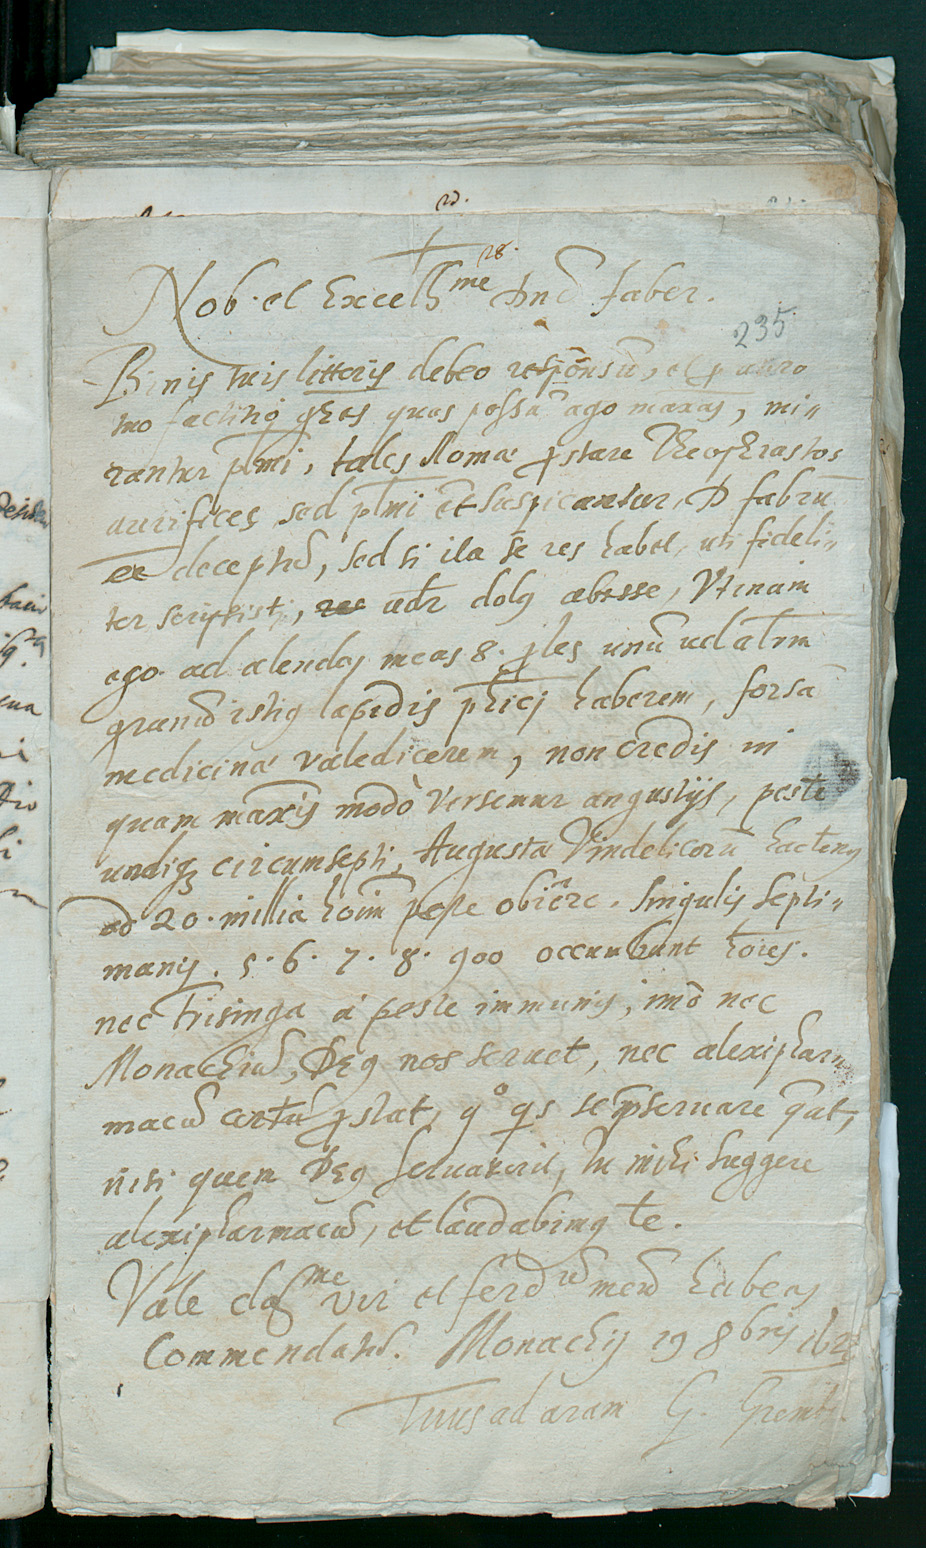 28.
Nob. et Excell^me Dne faber.
235
Binis tuis litteris debeo respōnsū, et p auro
tuo factitio grās quas possū ago maxās, mi„
rantur plmi, tales Romæ pstare Theophrastos
aurifices sed plmi et suspicantur, D fabrū
ee deceptū, sed si ita se res habet, uti fideli„
ter scripsisti, adr dolus abesse, Vtinam
ego ad alendas meas 8. ples unū ad altm
granū istius lapidis phici haberem, forsā
medicinæ valedicerem, non credis in
quam maxis modò versemur angustijs, peste
undiq circumsepti, Augusta Vindelicorū hactenus
ad 20. millia hoim peste obiēre. Singulis septi„
manis. 5. 6. 7. 8. 900 occumbunt hoies.
nec frisinga à peste immunis, imò nec
Monachiū, Deus nos seruet, nec alexiphar„
macū certū pstat, qº qs se pseruare qat,
nisi quem Deus seruauerit, tu mihi suggere
alexipharmacū, et laudabimus te.
Vale clas^me vir et ferd^um meū habeas
Commendatū. Monachij 19 8bris 1628
Tuus ad aram G.